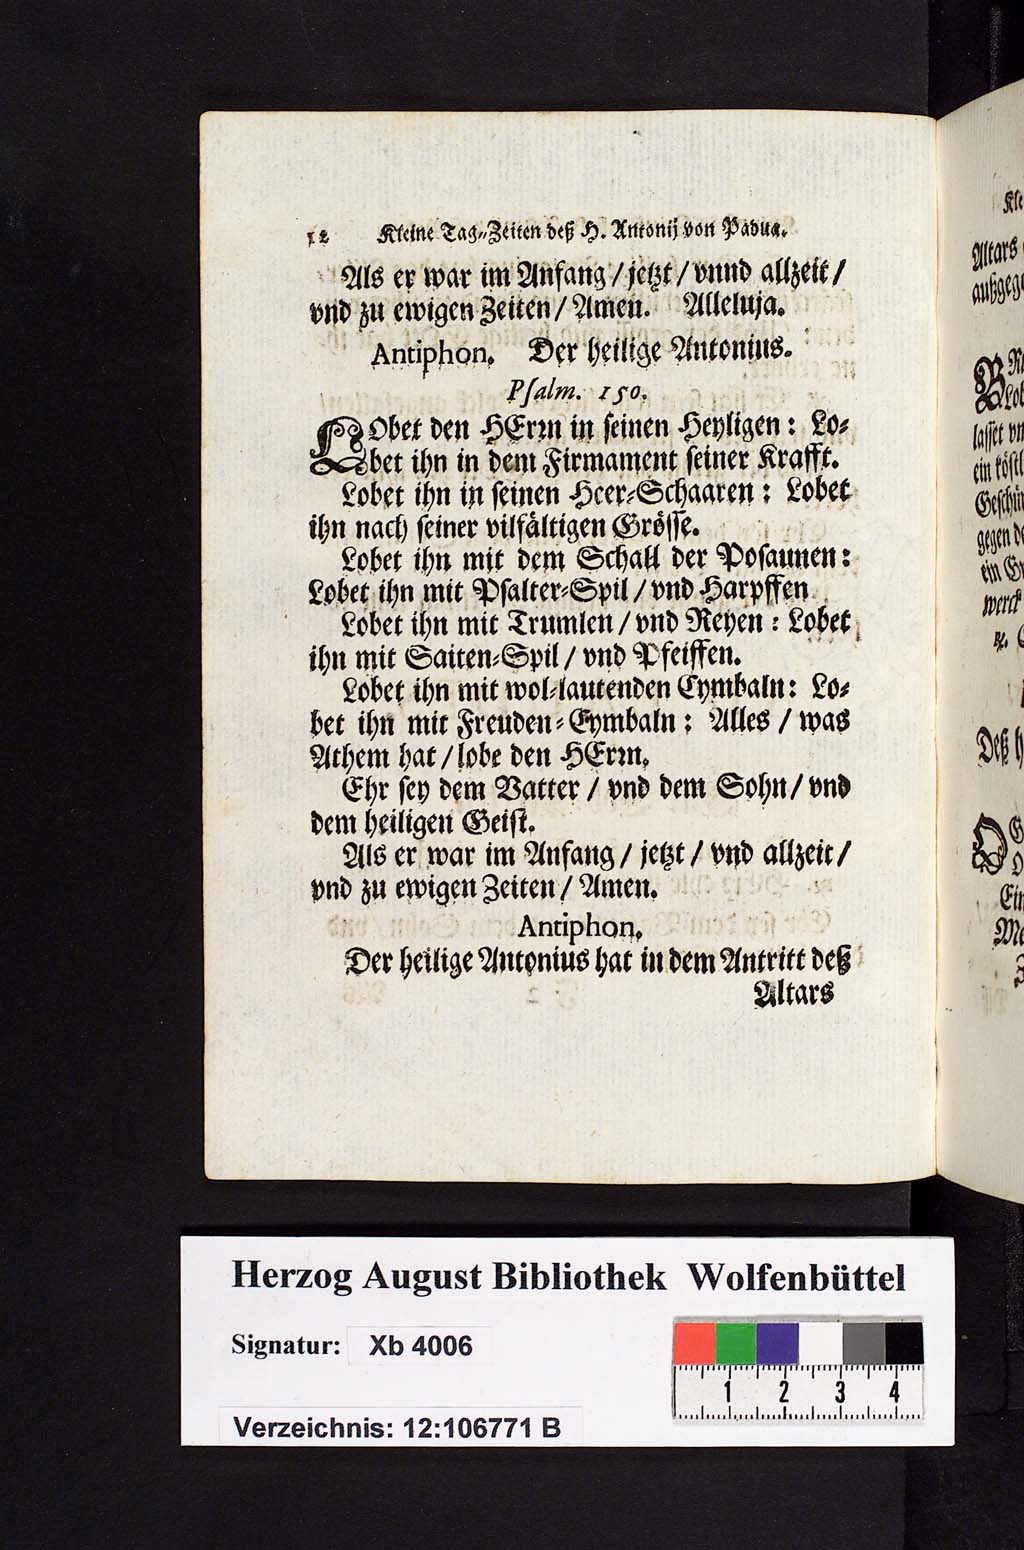 12 Kleine Tag-Zeiten deß H. Antonij von Padua.
Als er war im Anfang / jetzt / vnnd allzeit /
vnd zu ewigen Zeiten / Amen. Alleluja.
Antiphon. Der heilige Antonius.
Psalm. 150.
LObet den HErrn in seinen Heyligen: Lo-
bet ihn in dem Firmament seiner Krafft.
Lobet ihn in seinen Heer-Schaaren: Lobet
ihn nach seiner vilfältigen Grösse.
Lobet ihn mit dem Schall der Posaunen:
Lobet ihn mit Psalter-Spil / vnd Harpffen
Lobet ihn mit Trumlen / vnd Reyen: Lobet
ihn mit Saiten-Spil / vnd Pfeiffen.
Lobet ihn mit wol-lautenden Cymbaln: Lo-
bet ihn mit Freuden-Cymbaln: Alles / was
Athem hat / lobe den HErrn.
Ehr sey dem Vatter / vnd dem Sohn / vnd
dem heiligen Geist.
Als er war im Anfang / jetzt / vnd allzeit /
vnd zu ewigen Zeiten / Amen.
Antiphon.
Der heilige Antonius hat in dem Antritt deß
Altars
Kle
Altars
außgege
lasset vn
ein köstl
Geschü
gegen de
werck
Deß h
Herzog August Bibliothek Wolfenbüttel
Signatur: Xb 4006
1 2 3 4
Verzeichnis: 12:106771 B